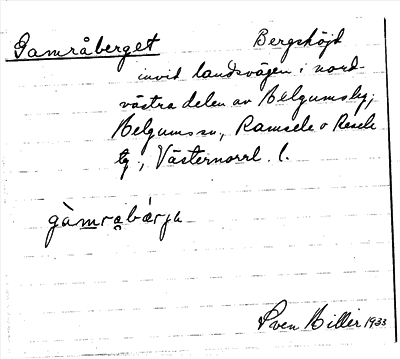 Gamråberget Bergshöjd
invid landsvägen i nord-
västra delen av Helgumsby,
Helgums sn, Ramsele o Resele
tg, Västernorrl. l.
gàmrabárja
Sven Hiller 1933